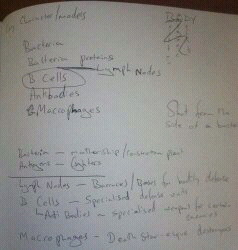 Character/models
Body
Bacteria
Bacteria proteins
Lymph Nodes
B Cells
Antibodies
Macrophages
Shot from the
side of a
Bacteria – mothership/construction plant
Antigens – fighters
Lymph Nodes – Barracks/Bases for bodily defense
B Cells – Specialised defense units
Anti Bodies – specialised weapons for certain
enemies
Macrophages – Death Star-esque destroyers